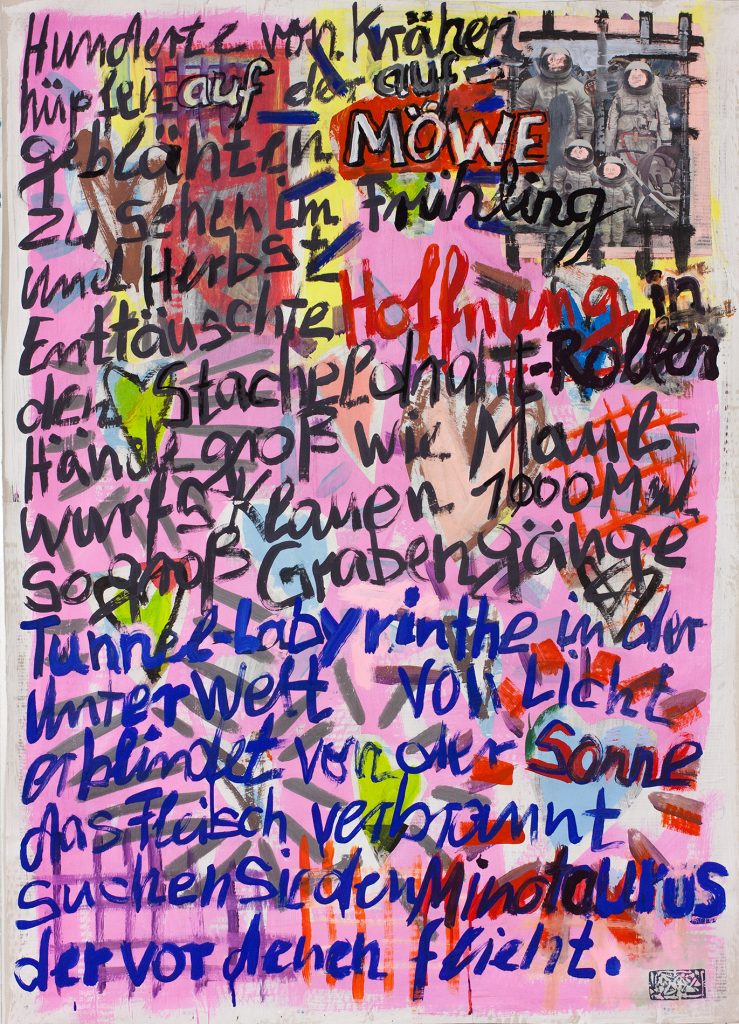 Hunderte von Krähen
hüpfen auf der auf-
geblähten MÖWE
zu sehen im Frühling
und Herbst
Enttäuschte Hoffnung in
den Stacheldraht-Rollen
Hände groß wie Maul-
wurfs Klauen 1000 Mal
so groß Grabengänge
Tunnel-Labyrinthe in der
Unterwelt Licht
erblindet von der Sonne
das Fleisch verbrannt
suchen Sie den Minotaurus
der vor denen flieht.